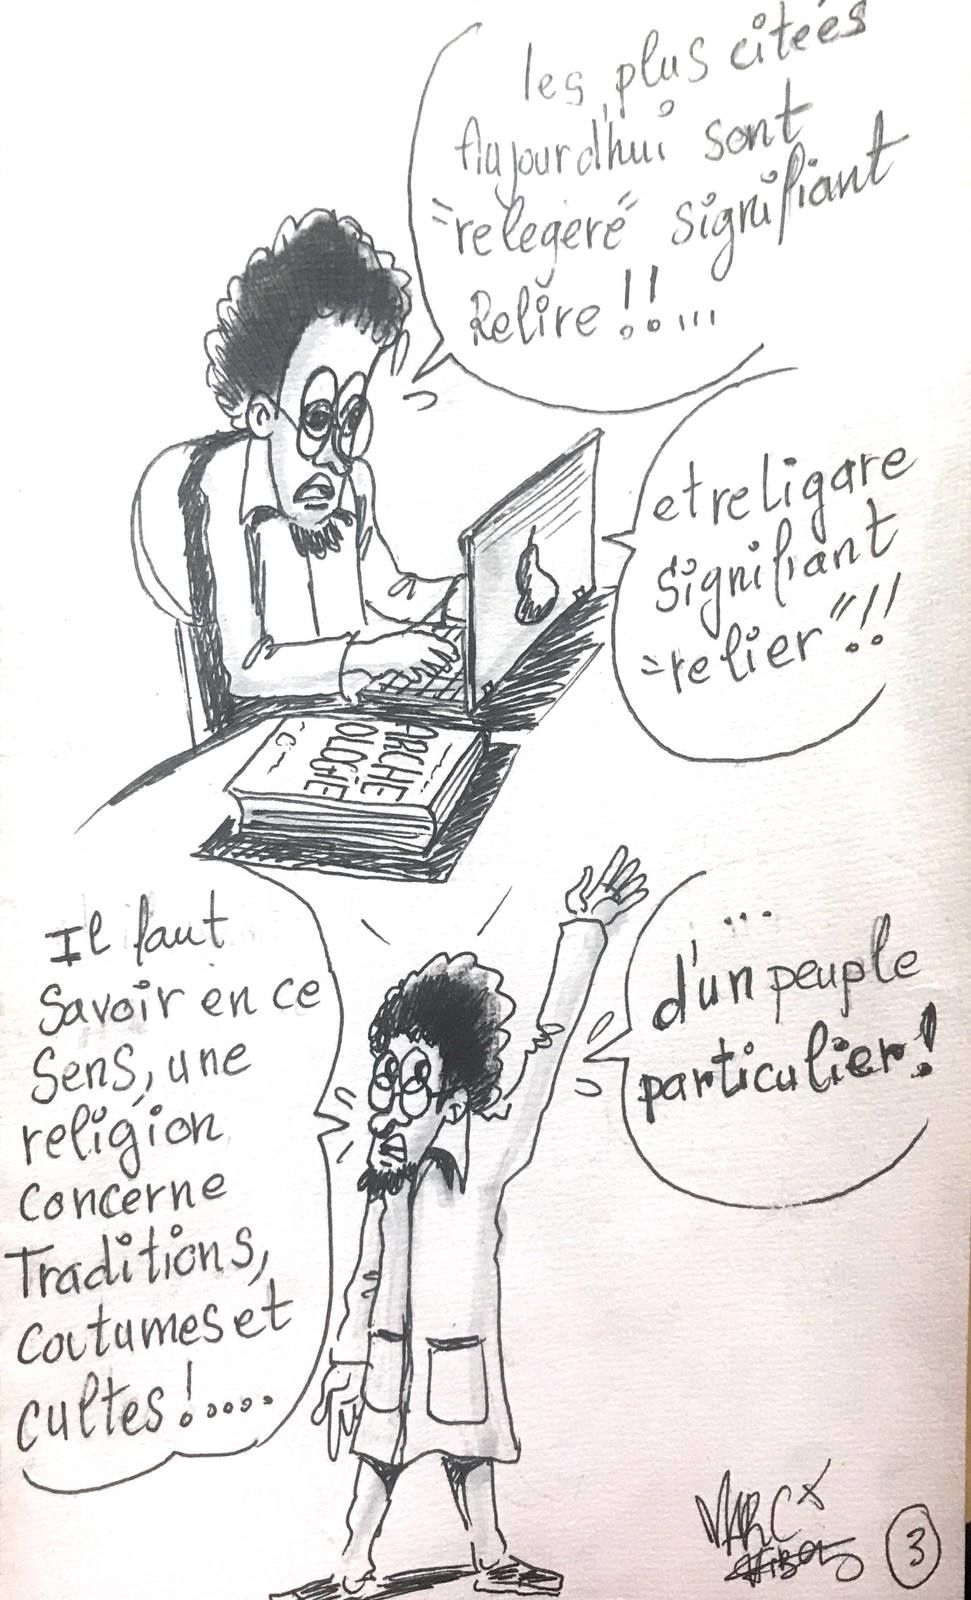 les plus citées
Aujourd'hui sont
"relegeré" signifiant
Relire!!...
et religare
signifiant
"relier"!!
ARCHE
OLOGIE
Il faut
Savoir en ce
Sens, une
religion
concerne
Traditions,
coutumes et
cultes!....
...
d'un peuple
particulier!
MARC
3